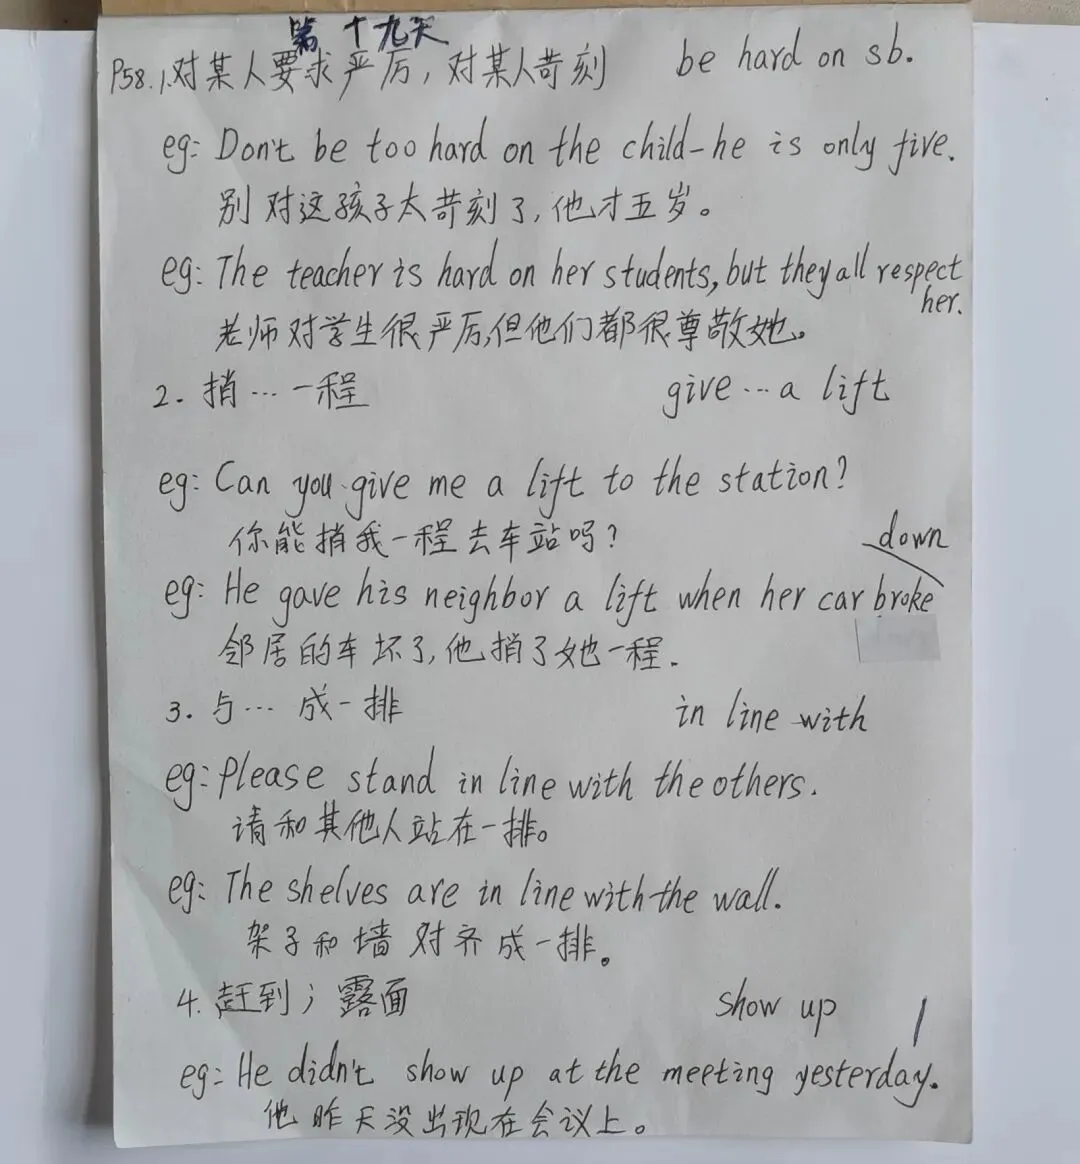 第十九天
P58.1.对某人要求严厉,对某人苛刻 be hard on sb.
eg: Don't be too hard on the child-he is only five.
别对这孩子太苛刻了,他才五岁。
eg: The teacher is hard on her students, but they all respect
her.
老师对学生很严厉,但他们都很尊敬她。
2. 捎…一程 give…a lift
eg: Can you give me a lift to the station?
你能捎我一程去车站吗?
down
eg: He gave his neighbor a lift when her car broke
邻居的车坏了,他捎了她一程.
3. 与… 成一排 in line with
eg: please stand in line with the others.
请和其他人站在一排。
eg: The shelves are in line with the wall.
架子和墙对齐成一排。
4. 赶到;露面 show up
eg: He didn't show up at the meeting yesterday.
他昨天没出现在会议上。